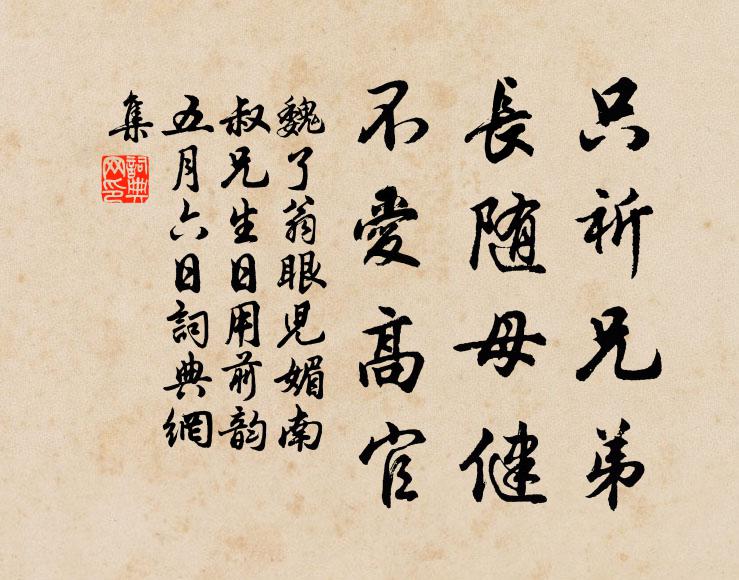 只祈兄弟
長随母健
不愛高官
魏了翁眼児媚南
叔兄生日用前韵
五月六日詞典網
集
詞典
网印